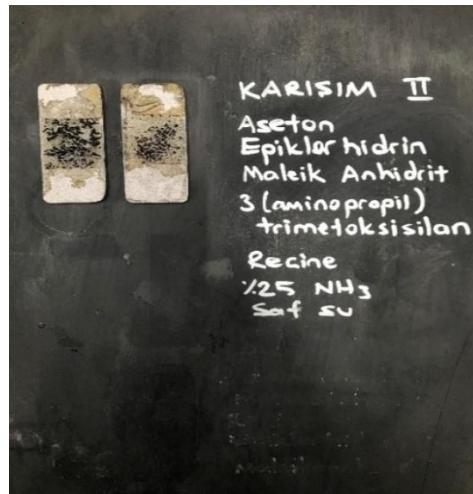 KARIŞIM II
Aseton
Epiklor hidrin
Maleik Anhidrit
3 (aminopropil)
trimetoksisilan
Reçine
%25 NH3
Saf su